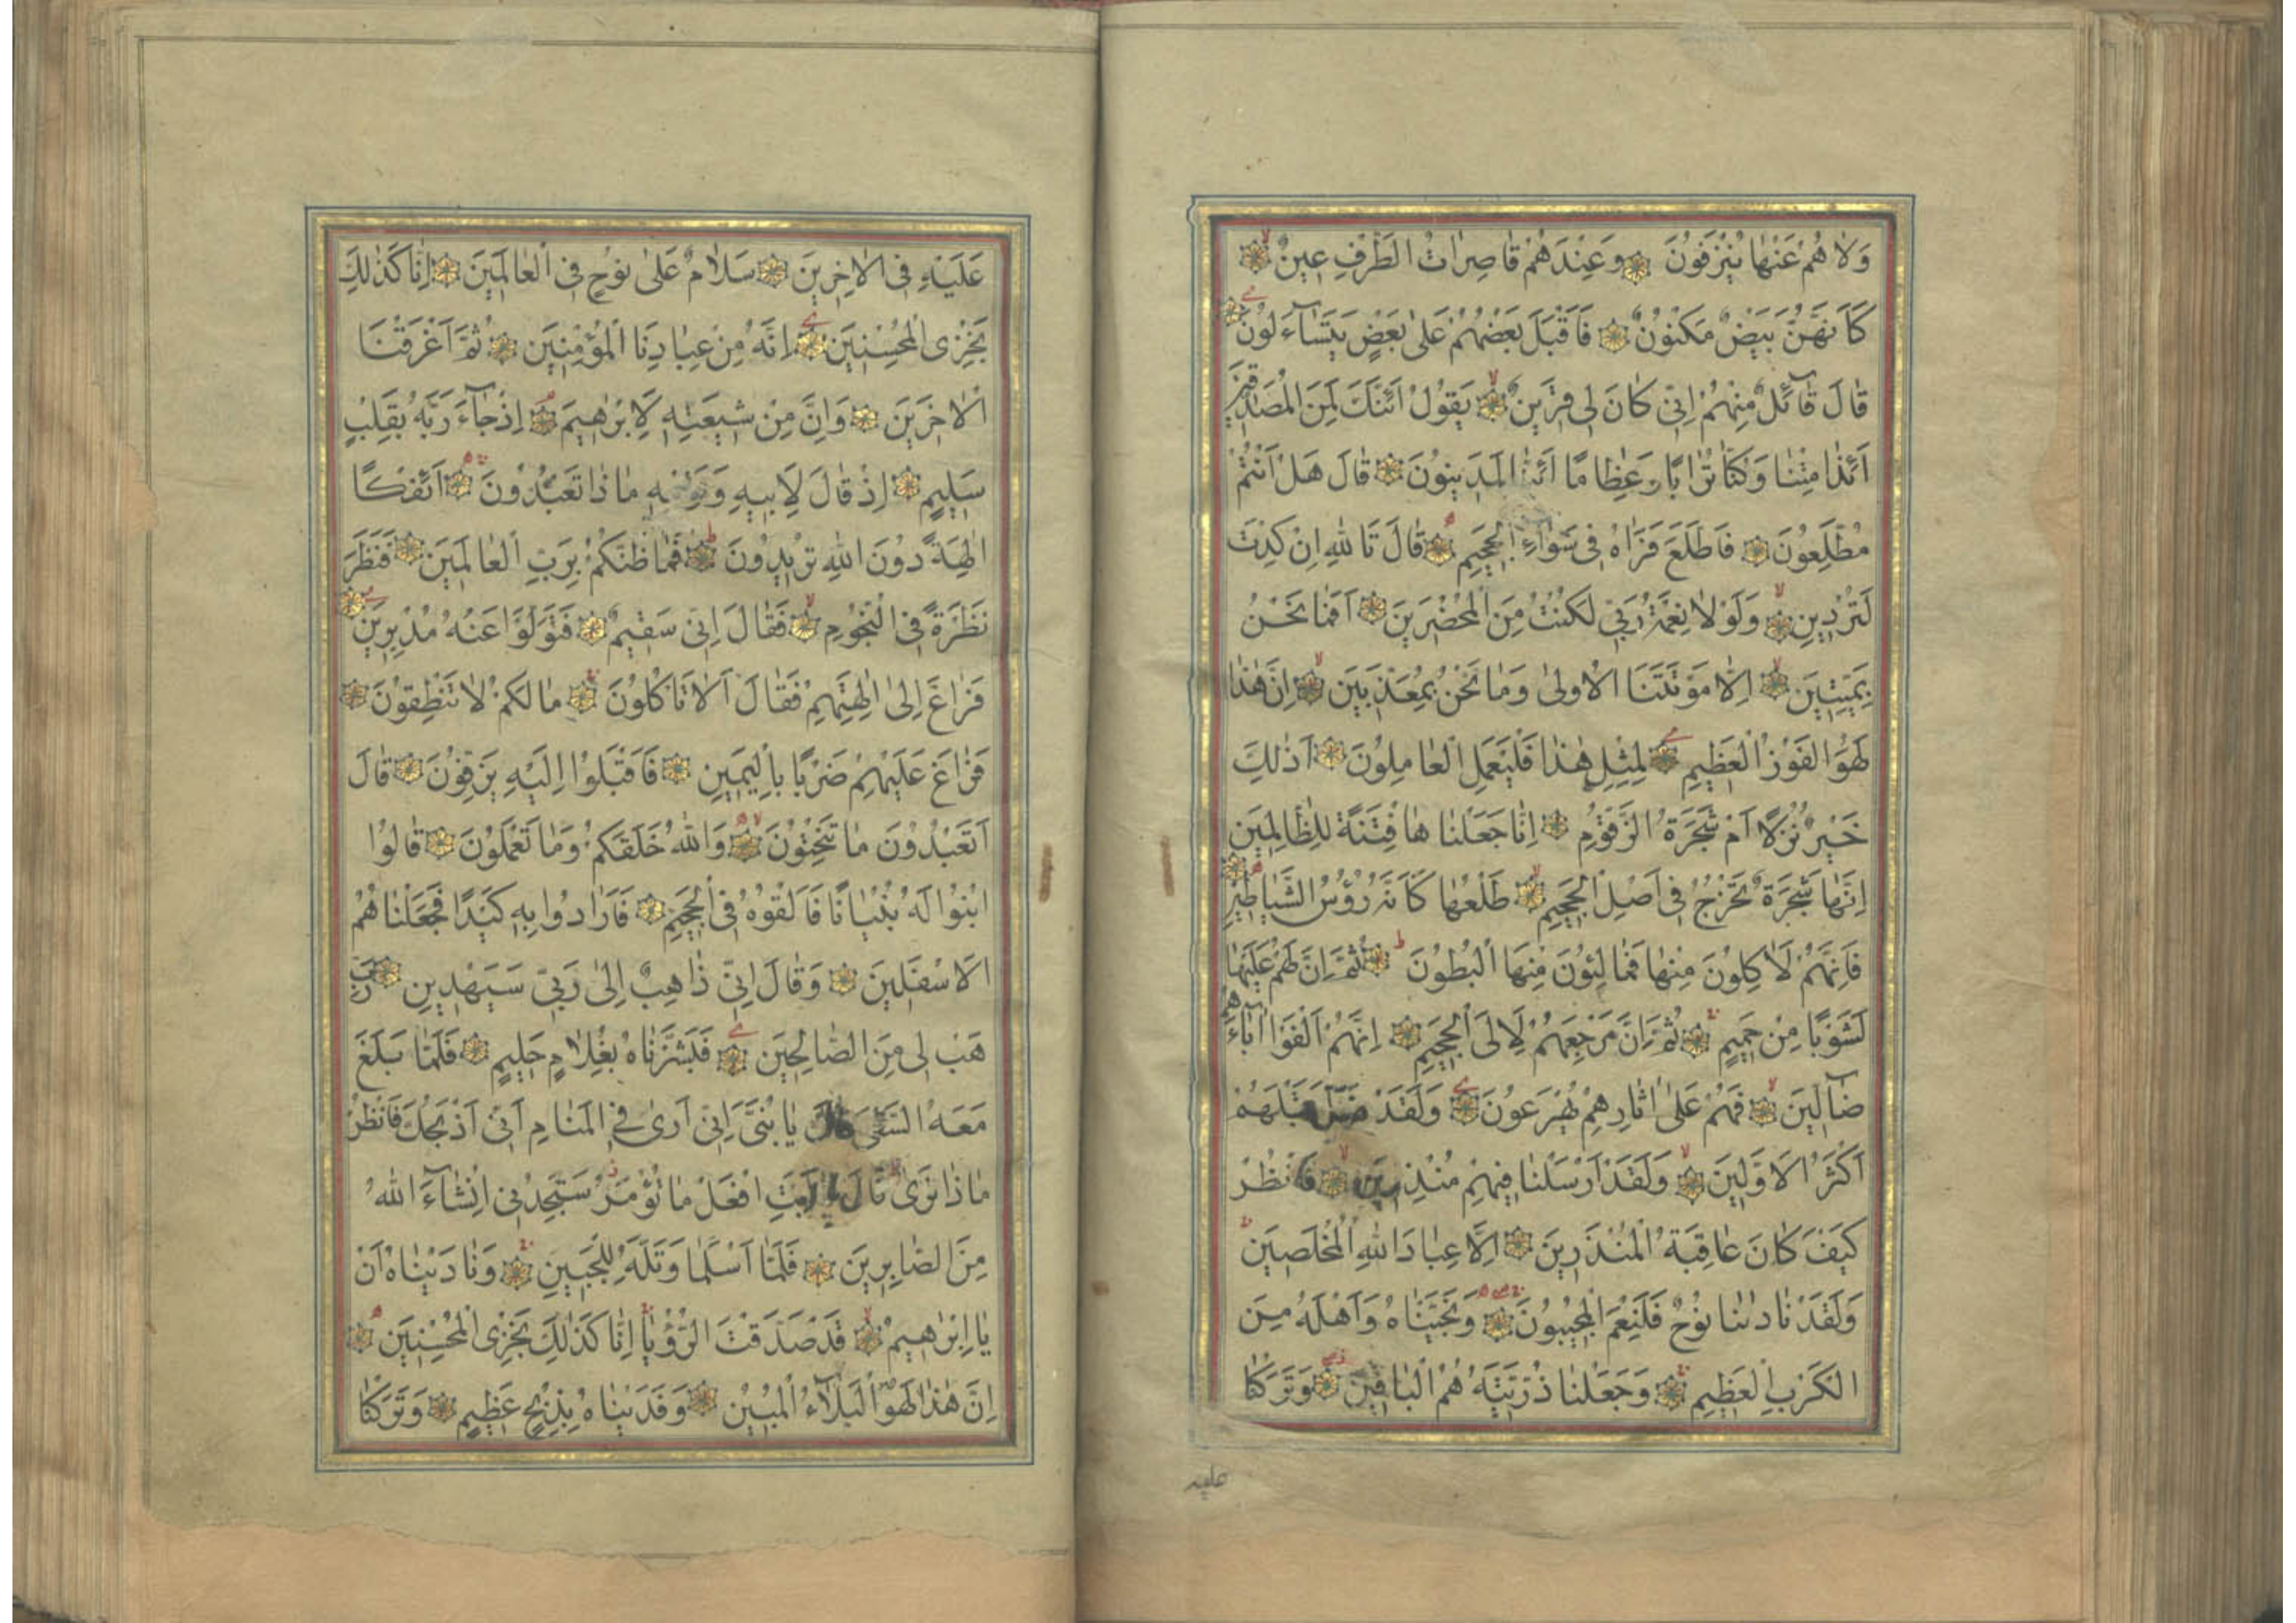 وَلَا هُمْ عَنْهَا يُنْزَفُونَ وَعِنْدَهُمْ قَاصِرَاتُ الطَّرْفِ عِينٌ
كَأَنَّهُنَّ بَيْضٌ مَكْنُونٌ فَأَقْبَلَ بَعْضُهُمْ عَلَى بَعْضٍ يَتَسَآءَلُونَ
قَالَ قَآئِلٌ مِنْهُمْ اِنِّي كَانَ لِي قَرِينٌ يَقُولُ اَئِنَّكَ لَمِنَ الْمُصَدِّقِينَ
اَئِذَا مِتْنَا وَكُنَّا تُرَابًا وَعِظَامًا اَئِنَّا لَمَدِينُونَ قَالَ هَلْ اَنْتُمْ
مُطَّلِعُونَ فَاطَّلَعَ فَرَاٰهُ فِي سَوَآءِ الْجَحِيمِ قَالَ تَاللّٰهِ اِنْ كِدْتَ
لَتُرْدِينِ وَلَوْلَا نِعْمَةُ رَبِّي لَكُنْتُ مِنَ الْمُحْضَرِينَ اَفَمَا نَحْنُ
بِمَيِّتِينَ اِلَّا مَوْتَتَنَا الْاُولٰى وَمَا نَحْنُ بِمُعَذَّبِينَ اِنَّ هٰذَا
لَهُوَ الْفَوْزُ الْعَظِيمُ لِمِثْلِ هٰذَا فَلْيَعْمَلِ الْعَامِلُونَ اَذٰلِكَ
خَيْرٌ نُزُلًا اَمْ شَجَرَةُ الزَّقُّومِ اِنَّا جَعَلْنَاهَا فِتْنَةً لِلظَّالِمِينَ
اِنَّهَا شَجَرَةٌ تَخْرُجُ فِي اَصْلِ الْجَحِيمِ طَلْعُهَا كَاَنَّهُ رُؤُسُ الشَّيَاطِينِ
فَاِنَّهُمْ لَاٰكِلُونَ مِنْهَا فَمَالِئُونَ مِنْهَا الْبُطُونَ ثُمَّ اِنَّ لَهُمْ عَلَيْهَا
لَشَوْبًا مِنْ حَمِيمٍ ثُمَّ اِنَّ مَرْجِعَهُمْ لَاِلَى الْجَحِيمِ اِنَّهُمْ اَلْفَوْا اٰبَآءَهُمْ
ضَآلِّينَ فَهُمْ عَلٰى اٰثَارِهِمْ يُهْرَعُونَ وَلَقَدْ ضَلَّ قَبْلَهُمْ
اَكْثَرُ الْاَوَّلِينَ وَلَقَدْ اَرْسَلْنَا فِيهِمْ مُنْذِرِينَ فَانْظُرْ
كَيْفَ كَانَ عَاقِبَةُ الْمُنْذَرِينَ اِلَّا عِبَادَ اللّٰهِ الْمُخْلَصِينَ
وَلَقَدْ نَادٰينَا نُوحٌ فَلَنِعْمَ الْمُجِيبُونَ وَنَجَّيْنَاهُ وَاَهْلَهُ مِنَ
الْكَرْبِ الْعَظِيمِ وَجَعَلْنَا ذُرِّيَّتَهُ هُمُ الْبَاقِينَ وَتَرَكْنَا
عليه
عَلَيْهِ فِي الْاٰخِرِينَ سَلَامٌ عَلٰى نُوحٍ فِي الْعَالَمِينَ اِنَّا كَذٰلِكَ
نَجْزِي الْمُحْسِنِينَ اِنَّهُ مِنْ عِبَادِنَا الْمُؤْمِنِينَ ثُمَّ اَغْرَقْنَا
الْاٰخَرِينَ وَاِنَّ مِنْ شِيعَتِهِ لَاِبْرٰهِيمَ اِذْ جَآءَ رَبَّهُ بِقَلْبٍ
سَلِيمٍ اِذْ قَالَ لِاَبِيهِ وَقَوْمِهِ مَاذَا تَعْبُدُونَ اَئِفْكًا
اٰلِهَةً دُونَ اللّٰهِ تُرِيدُونَ فَمَا ظَنُّكُمْ بِرَبِّ الْعَالَمِينَ فَنَظَرَ
نَظْرَةً فِي النُّجُومِ فَقَالَ اِنِّي سَقِيمٌ فَتَوَلَّوْا عَنْهُ مُدْبِرِينَ
فَرَاغَ اِلٰى اٰلِهَتِهِمْ فَقَالَ اَلَا تَأْكُلُونَ مَا لَكُمْ لَا تَنْطِقُونَ
فَرَاغَ عَلَيْهِمْ ضَرْبًا بِالْيَمِينِ فَاَقْبَلُوا اِلَيْهِ يَزِفُّونَ قَالَ
اَتَعْبُدُونَ مَا تَنْحِتُونَ وَاللّٰهُ خَلَقَكُمْ وَمَا تَعْمَلُونَ قَالُوا
ابْنُوا لَهُ بُنْيَانًا فَاَلْقُوهُ فِي الْجَحِيمِ فَاَرَادُوا بِهِ كَيْدًا فَجَعَلْنَاهُمُ
الْاَسْفَلِينَ وَقَالَ اِنِّي ذَاهِبٌ اِلٰى رَبِّي سَيَهْدِينِ رَبِّ
هَبْ لِي مِنَ الصَّالِحِينَ فَبَشَّرْنَاهُ بِغُلَامٍ حَلِيمٍ فَلَمَّا بَلَغَ
مَعَهُ السَّعْيَ قَالَ يَا بُنَيَّ اِنِّي اَرٰى فِي الْمَنَامِ اَنِّي اَذْبَحُكَ فَانْظُرْ
مَاذَا تَرٰى قَالَ يَا اَبَتِ افْعَلْ مَا تُؤْمَرُ سَتَجِدُنِي اِنْشَآءَ اللّٰهُ
مِنَ الصَّابِرِينَ فَلَمَّا اَسْلَمَا وَتَلَّهُ لِلْجَبِينِ وَنَادَيْنَاهُ اَنْ
يَا اِبْرٰهِيمُ قَدْ صَدَّقْتَ الرُّؤْيَا اِنَّا كَذٰلِكَ نَجْزِي الْمُحْسِنِينَ
اِنَّ هٰذَا لَهُوَ الْبَلَآءُ الْمُبِينُ وَفَدَيْنَاهُ بِذِبْحٍ عَظِيمٍ وَتَرَكْنَا